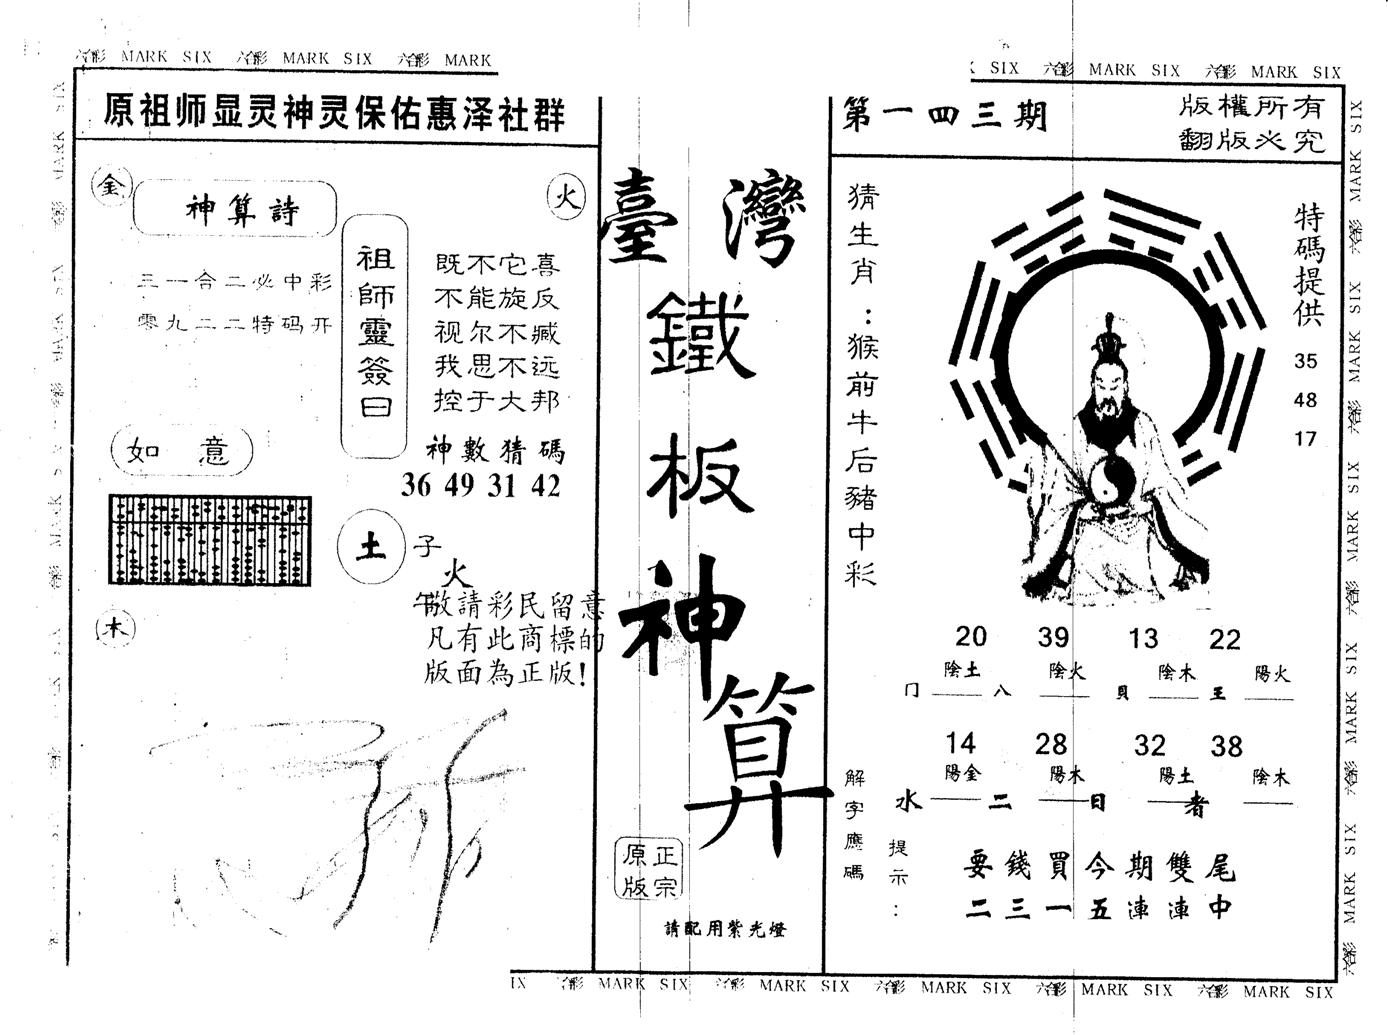 六合彩 MARK SIX 六合彩 MARK SIX 六合彩 MARK
SIX 六合彩 MARK SIX 六合彩 MARK SIX
原祖师显灵神灵保佑惠泽社群
金
神算詩
火
三一合二必中彩
零九二二特码开
祖師靈簽曰
既不它喜
不能旋反
视尔不臧
我思不远
控于大邦
如意
神數猜碼
36 49 31 42
土
子
火
午
木
敬請彩民留意
凡有此商標的
版面為正版!
臺灣
鐵
板
神
算
正宗
原版
請配用紫光燈
第一四三期
版權所有
翻版必究
猜生肖:猴前牛后豬中彩
特碼提供
35
48
17
20 39 13 22
陰土 陰火 陰木 陽火
冂 八 貝 王
14 28 32 38
陽金 陽木 陽土 陰木
水 二 日 者
解字應碼
提示:
要錢買今期雙尾
二三一五連連中
IX 六合彩 MARK SIX 六合彩 MARK SIX 六合彩 MARK SIX 六合彩 MARK SIX 六合彩 MARK SIX
六合彩 MARK SIX 六合彩 MARK SIX 六合彩 MARK SIX 六合彩 MARK SIX 六合彩 MARK SIX